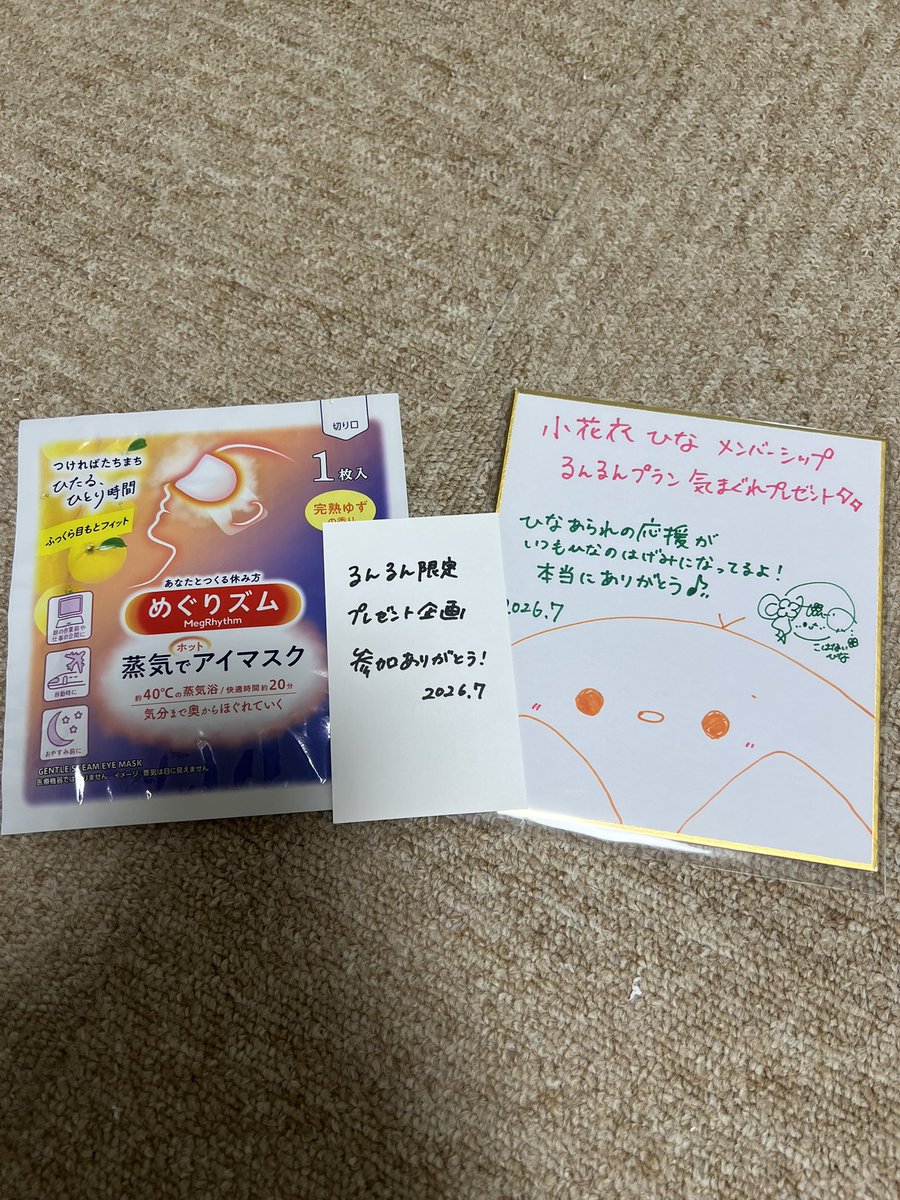 切り口
1枚入
つければたちまち
ひたる、
ひとり時間
ふっくら目もとフィット
完熟ゆず
の香り
あなたとつくる休み方
めぐりズム
MegRhythm
ホット
蒸気でアイマスク
約40℃の蒸気浴/快適時間約20分
気分まで奥からほぐれていく
朝の作業前や
仕事の合間に
移動時に
おやすみ前に
GENTLE STEAM EYE MASK
医療機器ではありません イメージ:蒸気は目に見えません
るんるん限定
プレゼント企画
参加ありがとう!
2026.7
小花衣 ひな メンバーシップ
るんるんプラン 気まぐれプレゼント
ひなあられの応援が
いつもひなのはげみになってるよ!
本当にありがとう♪
2026.7
こはない
ひな